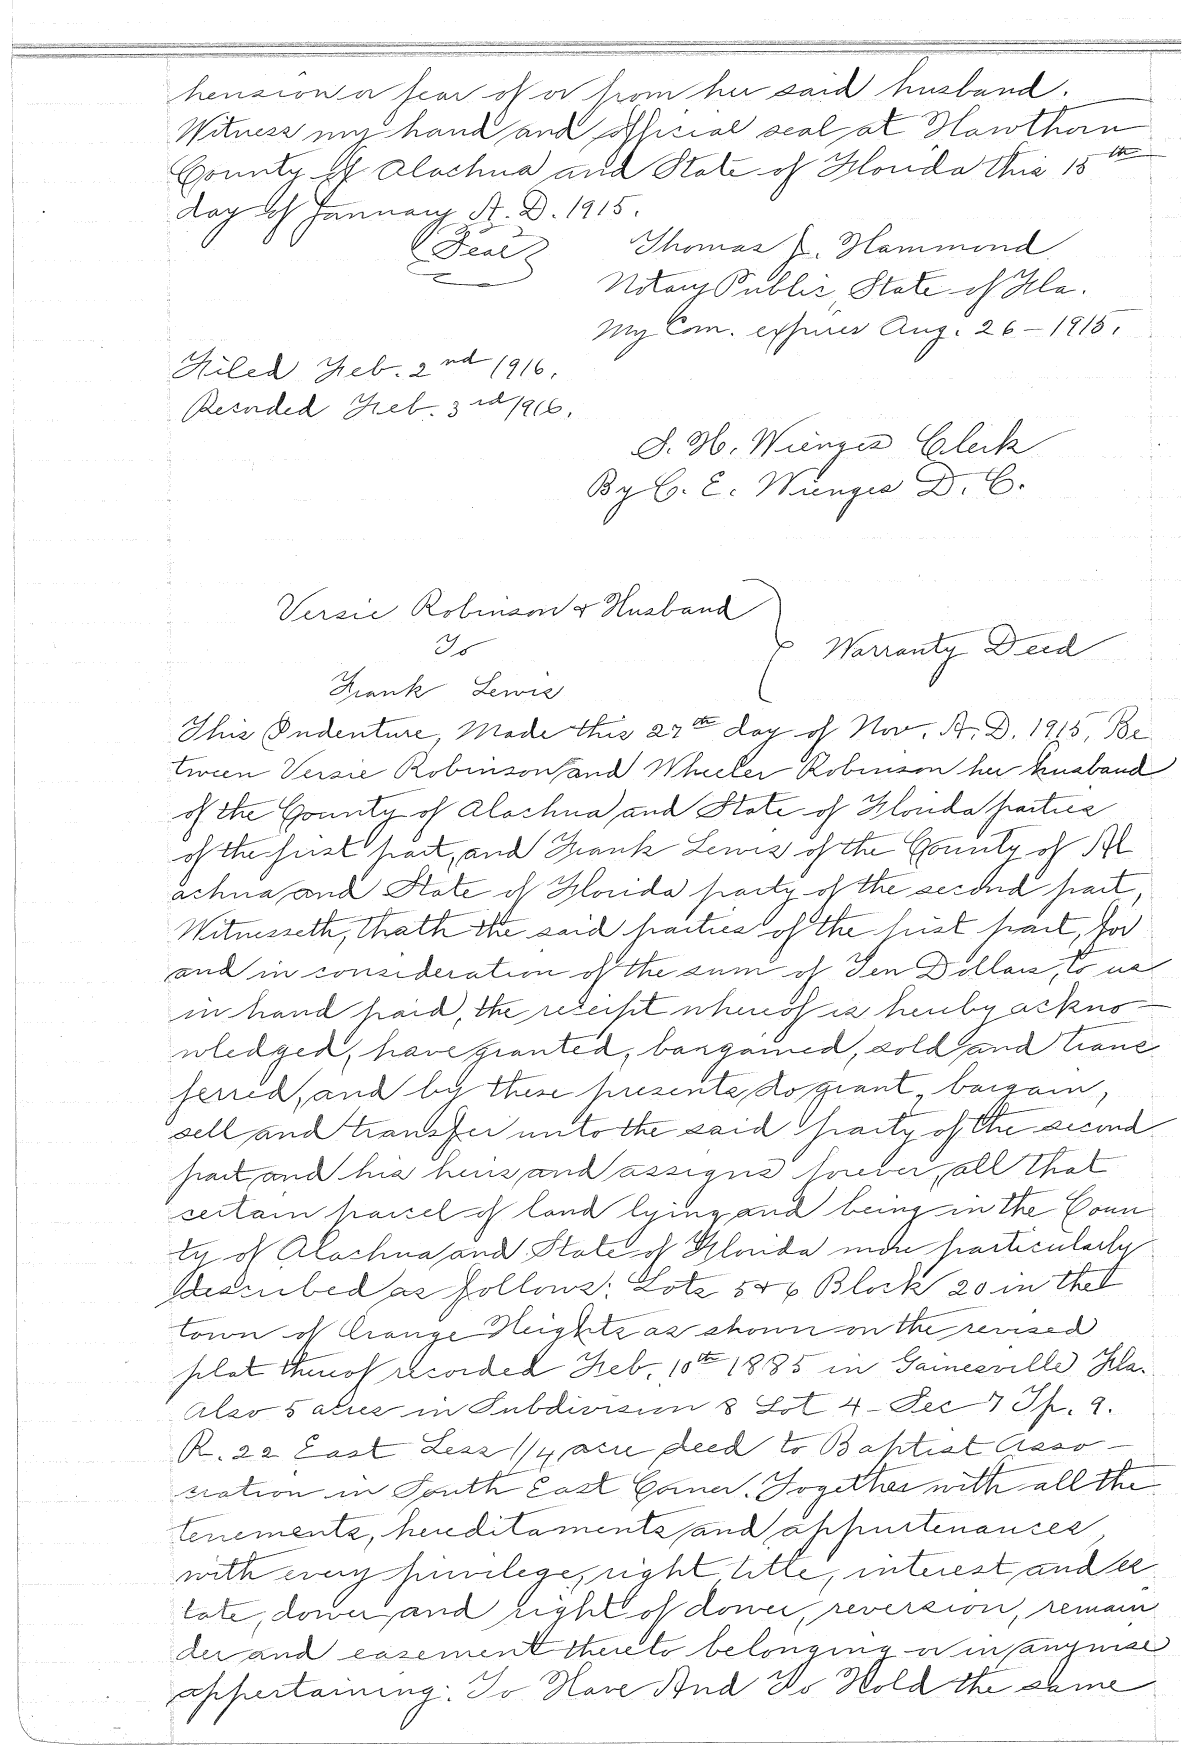 hension or fear of or from her said husband.
Witness my hand and official seal at Hawthorn
County of Alachua and State of Florida this 15th
day of January A. D. 1915.
(Seal) Thomas J. Hammond
Notary Public, State of Fla.
My Com. expires Aug. 26 - 1915.
Filed Feb. 2nd 1916.
Recorded Feb. 3rd 1916.
S. H. Wienges Clerk
By C. E. Wienges D. C.
Versie Robinson & Husband
To
Warranty Deed
Frank Lewis
This Indenture, Made this 27th day of Nov. A. D. 1915, Be
tween Versie Robinson and Wheeler Robinson her husband
of the County of Alachua and State of Florida parties
of the first part, and Frank Lewis of the County of Al
achua and State of Florida party of the second part,
Witnesseth, thath the said parties of the first part, for
and in consideration of the sum of Ten Dollars, to us
in hand paid, the receipt whereof is hereby ackno-
wledged, have granted, bargained, sold and trans
ferred, and by these presents do grant, bargain,
sell and transfer unto the said party of the second
part and his heirs and assigns forever, all that
certain parcel of land lying and being in the Coun
ty of Alachua and State of Florida more particularly
described as follows: Lots 5 & 6 Block 20 in the
town of Orange Heights as shown on the revised
plat thereof recorded Feb. 10th 1885 in Gainesville Fla.
Also 5 acres in Subdivision 8 Lot 4 - Sec 7 Tp. 9.
R. 22 East Less 1/4 acre deed to Baptist Asso-
ciation in South East Corner. Together with all the
tenements, hereditaments and appurtenances,
with every privilege, right, title, interest and es
tate, dower and right of dower, reversion, remain
der and easement thereto belonging or in anywise
appertaining: To Have And To Hold the same